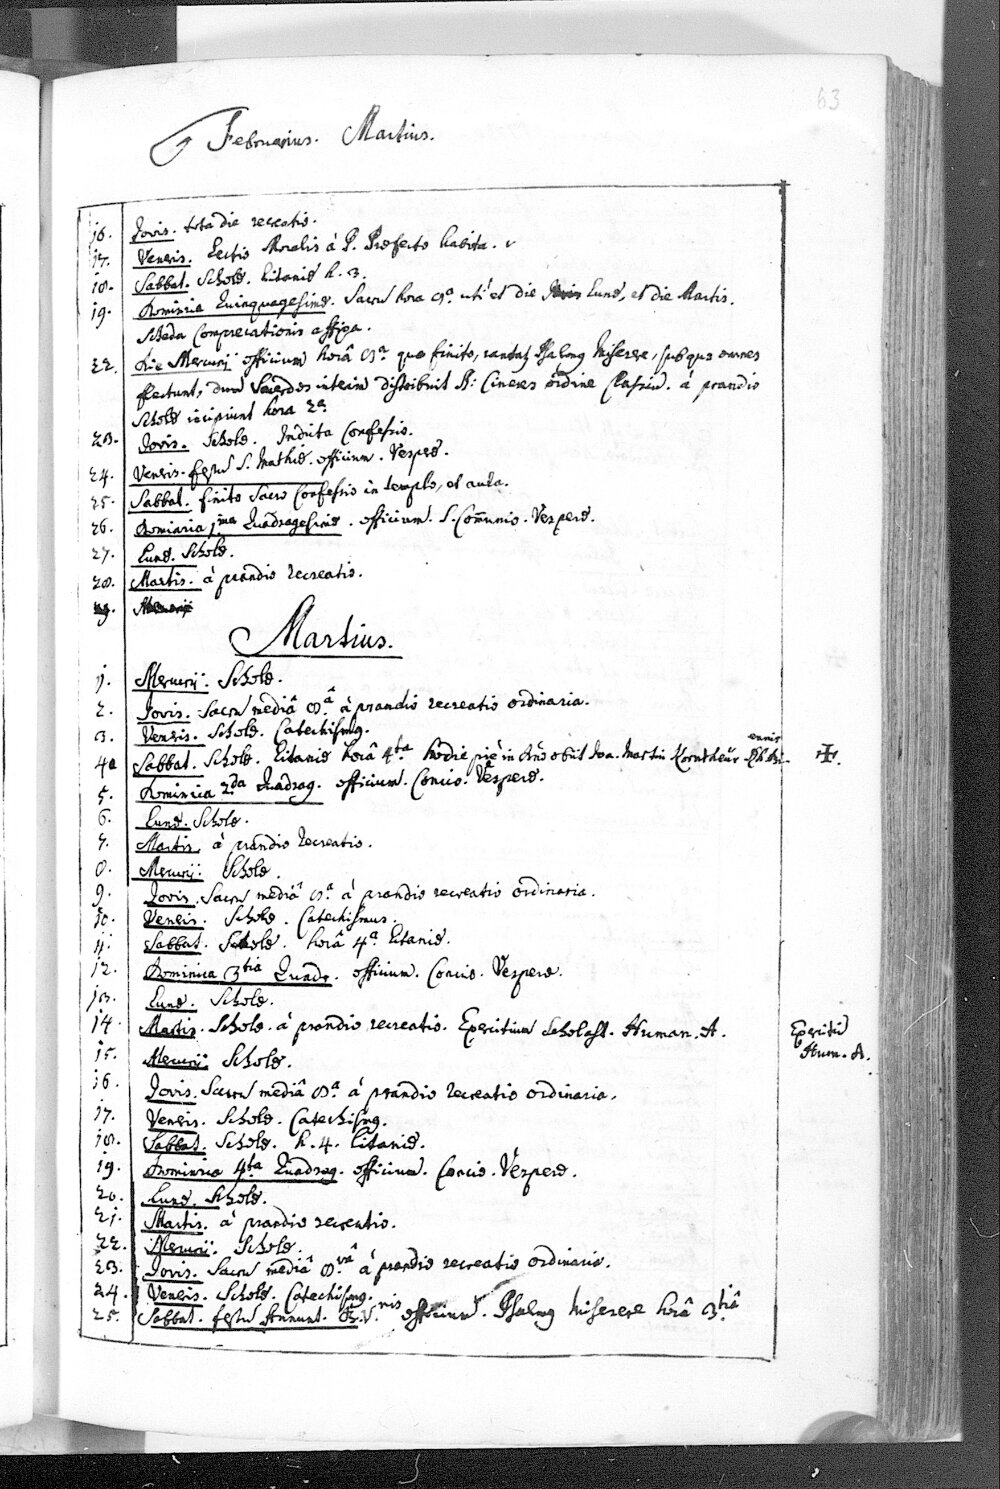 63
Februarius. Martius.
16. Jovis. tota die recreatio.
17. Veneris. Lectio Moralis à P. Praefecto habita.
18. Sabbat. Scholae. Litaniae h. 3.
19. Dominica Quinquagesimae. Sacrum hora 8a. uti et die Lunae, et die Martis.
Scheda Comprecationis affixa.
22. Die Mercurij officium horâ 8a. quo finito, cantatus Psalmus Miserere, sub quo omnes
flectunt, dum Sacerdos interim distribuit S: Cineres ordine Classium. à prandio
Scholae incipiunt hora 2a.
23. Jovis. Scholae. Indicta Confessio.
24. Veneris. festum S. Mathiae. officium. Vesperae.
25. Sabbat. finito Sacro Confessio in templo, et aula.
26. Dominica 1ma Quadragesimae. officium. S. Communio. Vesperae.
27. Lunae. Scholae.
28. Martis. à prandio recreatio.
Martius.
1. Mercurij. Scholae.
2. Jovis. Sacrum mediâ 8â. à prandio recreatio ordinaria.
3. Veneris. Scholae. Catechismus.
4. Sabbat. Scholae. Litaniae horâ 4ta. hodie piè in Dno obiit Joa. Martin Korntheür
5. Dominica 2da Quadrag. officium. Concio. Vesperae.
6. Lunae. Scholae.
7. Martis. à prandio recreatio.
8. Mercurij. Scholae.
9. Jovis. Sacrum mediâ 8a. à prandio recreatio ordinaria.
10. Veneris. Scholae. Catechismus.
11. Sabbat. Scholae. horâ 4a. Litaniae.
12. Dominica 3tia Quadr. officium. Concio. Vesperae.
13. Lunae. Scholae.
14. Martis. Scholae. à prandio recreatio. Exercitium Scholast. Human. A.
Exercitiũ
Hum. A.
15. Mercurij. Scholae.
16. Jovis. Sacrum mediâ 8a. à prandio recreatio ordinaria.
17. Veneris. Scholae. Catechismus.
18. Sabbat. Scholae. h. 4. Litaniae.
19. Dominica 4ta Quadrag. officium. Concio. Vesperae.
20. Lunae. Scholae.
21. Martis. à prandio recreatio.
22. Mercurij. Scholae.
23. Jovis. Sacrum mediâ 8vâ. à prandio recreatio ordinaria.
24. Veneris. Scholae. Catechismus.
25. Sabbat. festum Annunt. B. V. officium. Psalmus Miserere horâ 3tiâ.